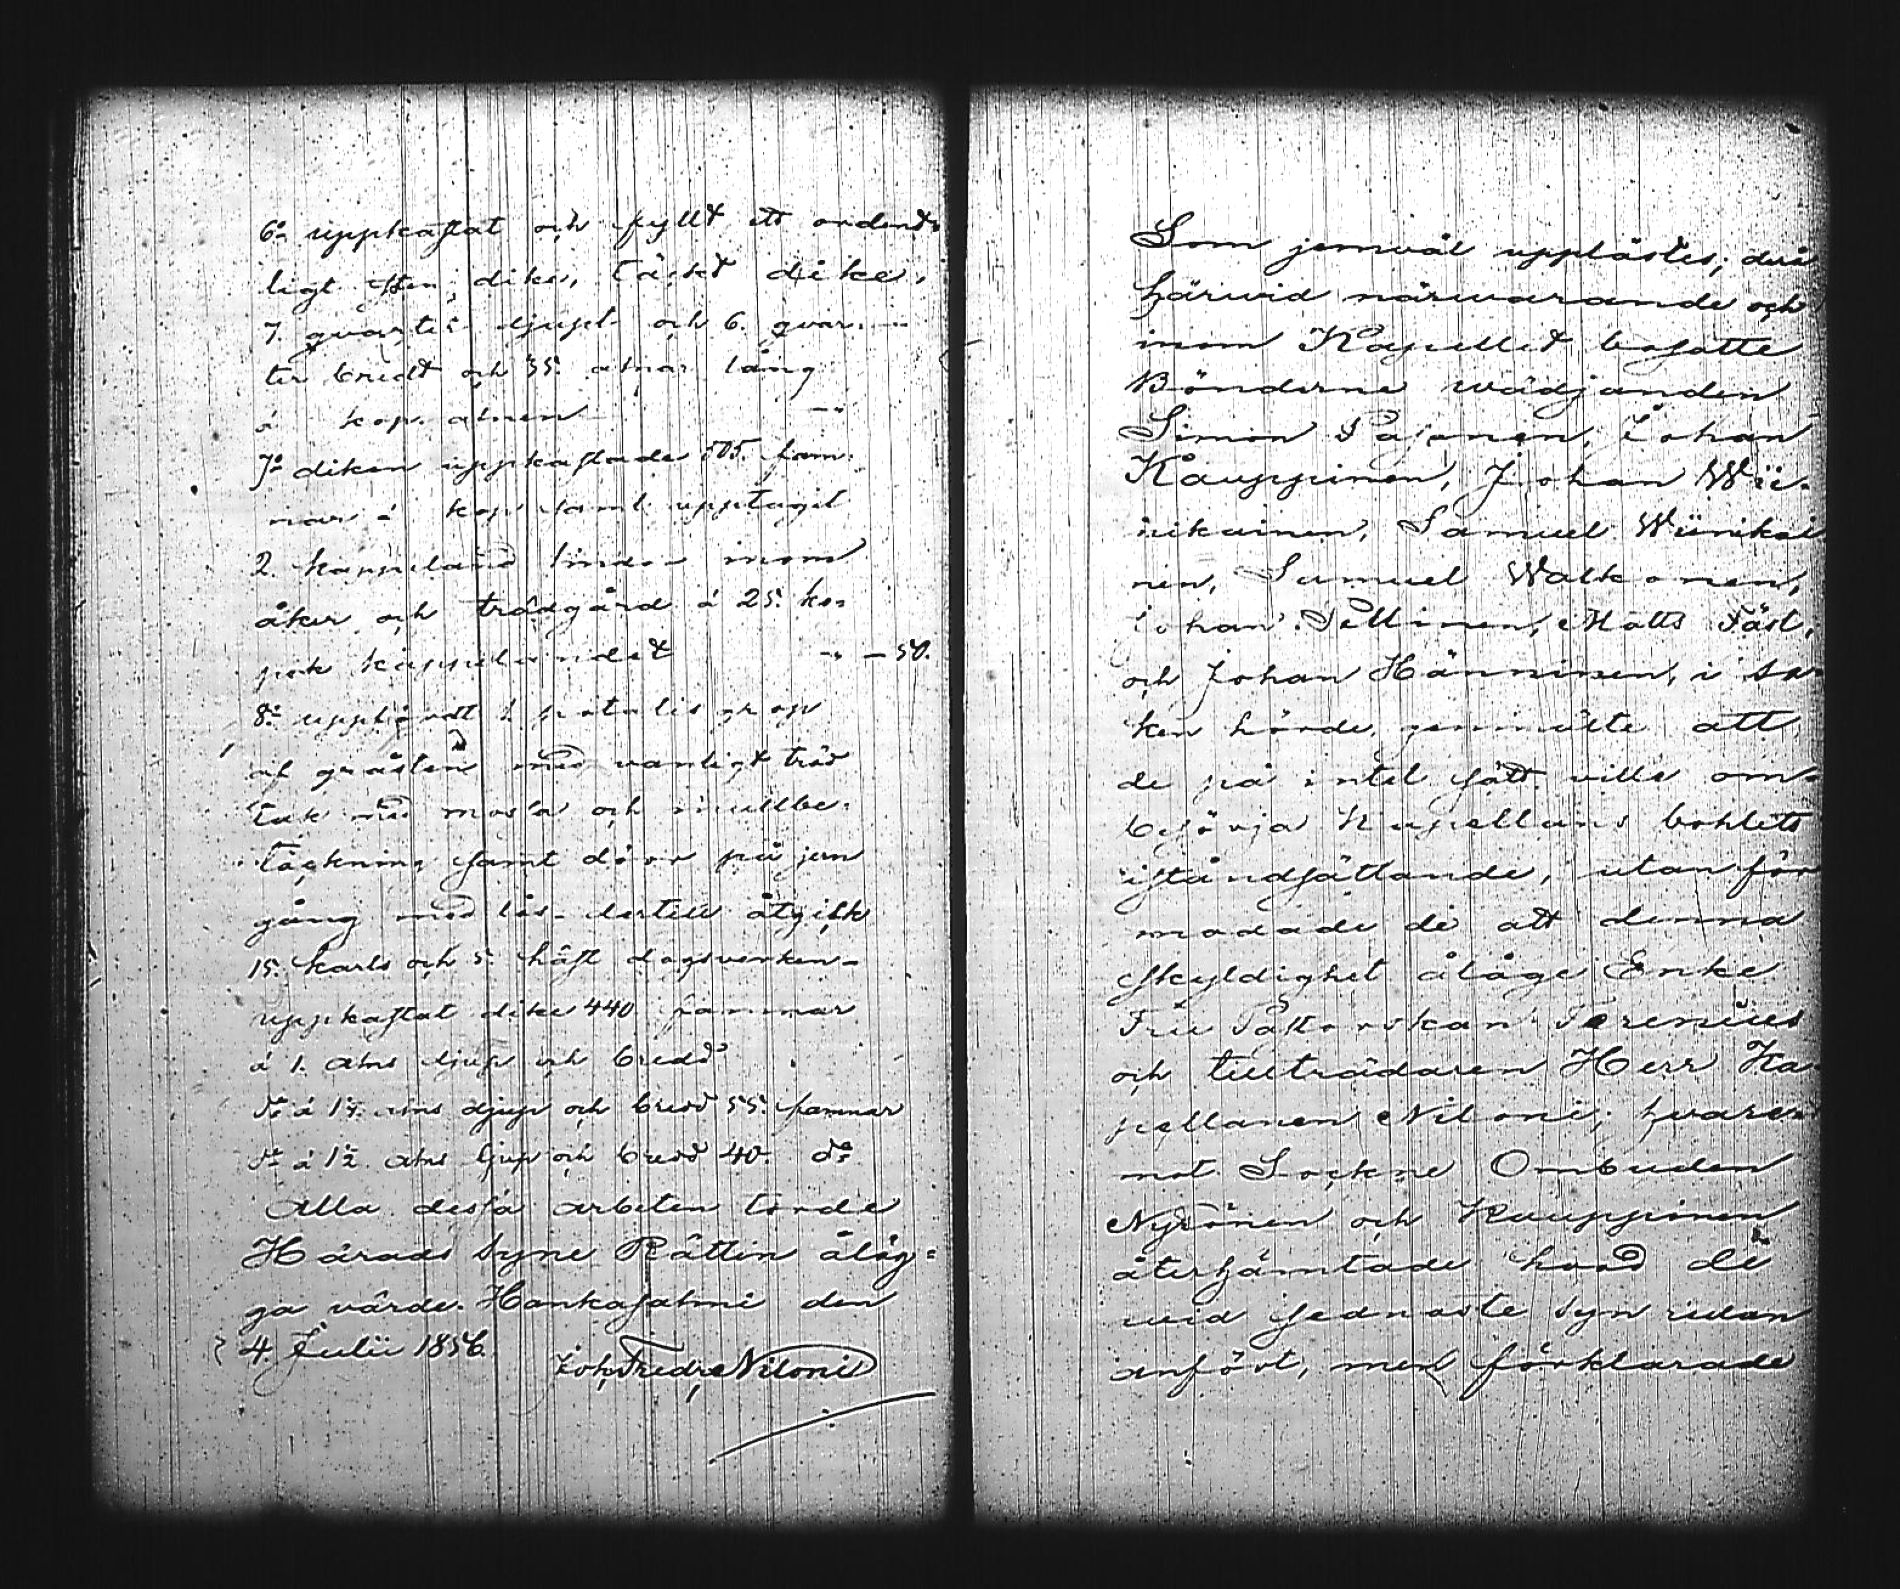 6o uppkastat och fyllt ett ordent=
ligt sten dike, täckt dike,
7. qvarter djupt och 6. qvar-
ter bredt och 35. alnar lång
á kop. alnen
7o diken uppkastade 505. fam-
nar á kop samt upptagit
2. kappeland linda inom
åker och trädgård á 25. ko-
pek kappelandet " - 50.
8o uppfördt 1. potatis grop
af gråsten med vanligt träd
tak med mossa och mullbe-
täckning samt dörr på jern
gång med lås. dertill åtgick
15. karls och 5. häst dagsverken-
uppkastat dike 440 famnar
á 1. alns djup och bredd
do á 1¼ alns djup och bredd 55. famnar
do á 1½ alns djup och bredd 40. do
Alla dessa arbeten torde
Härads Syne Rätten åläg=
ga värde. Hankasalmi den
4. Julii 1856.
Joh. Fredr. Niloni
Som jemväl upplästes; deri
härwid närwarande och
inom Kapellet bosatte
Bönderne wädjanden
Simon Pajonen, Johan
Kauppinen, Johan Wii-
nikainen, Samuel Wiinikai
nen, Samuel Walkonen,
Johan Pellinen, Matts Täst,
och Johan Hänninen, i sa-
ken hörde genmälte att
de på intet sätt ville om-
besörja Kapellans bohlets
iståndsättande, utan för
modade de att denna
skyldighet ålåge Enke
Fru Pastorskan Forenius
och tillträdaren Herr Ka-
pellanen Niloni; hvare-
mot Sockne Ombuden
Nyrönen och Kauppinen
återhämtade hvad de
wid sednaste syn redan
anfört, men förklarade